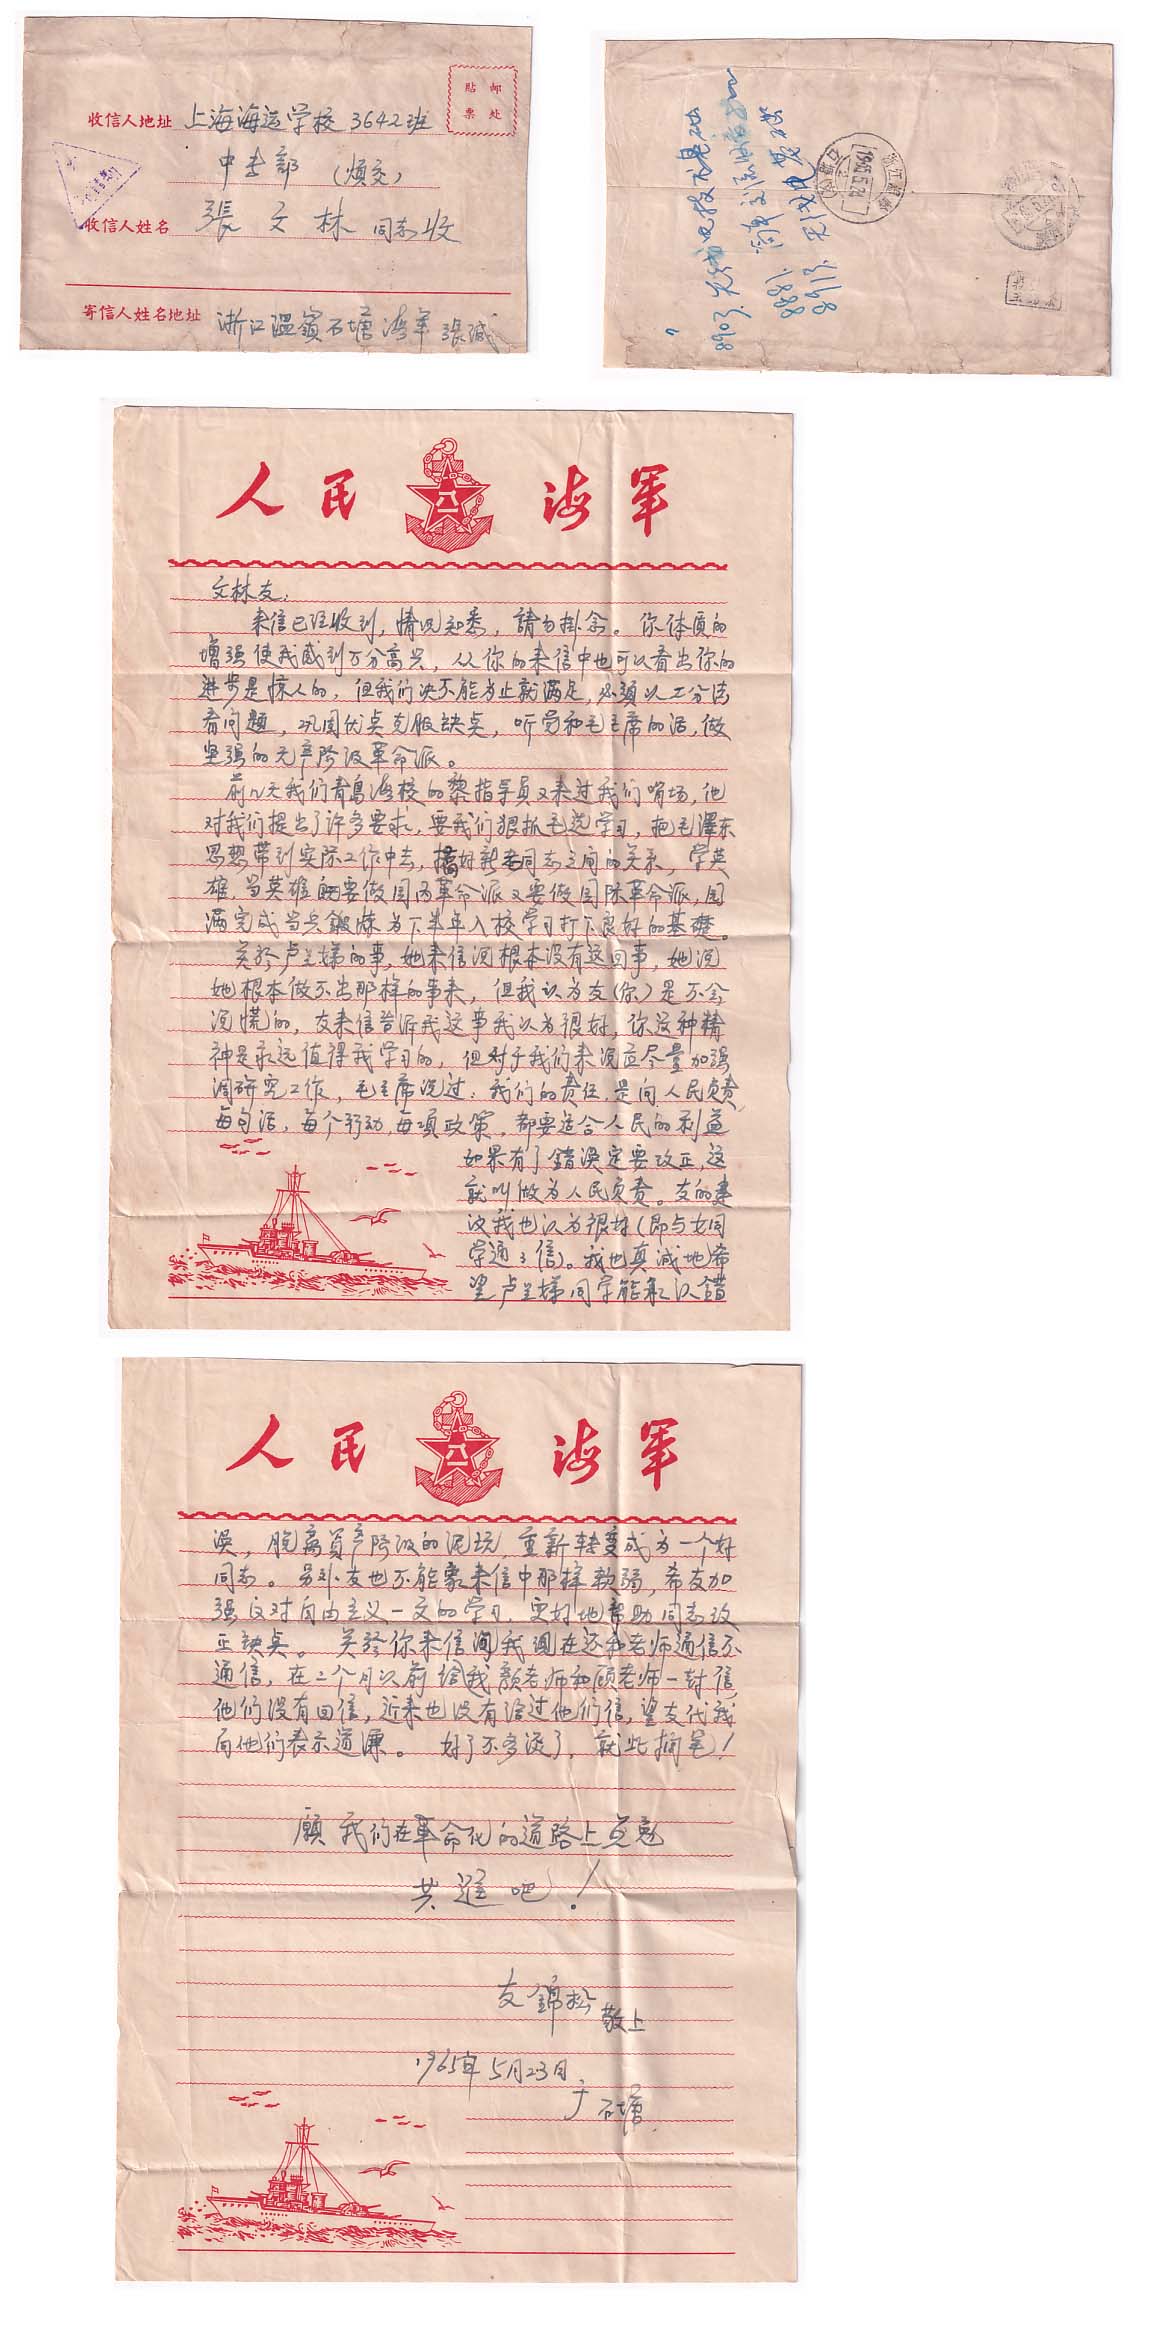 贴邮
票处
收信人地址 上海海运学校3642班
中专部（烦交）
收信人姓名 張文林 同志收
寄信人姓名地址 浙江温嶺石塘海軍 張
8903.
8881.
8913. 无线电
浙江温岭
1965.5.24
石塘
人民海军
文林友：
来信已经收到，情况知悉，請勿掛念。你体质的
增强使我感到万分高兴，从你的来信中也可以看出你的
进步是惊人的，但我们决不能为止就满足，必须以二分法
看问题，巩固优点克服缺点，听党和毛主席的话，做
坚强的无产阶级革命派。
前几天我们青岛海校的黎指导员又来过我们哨场，他
对我们提出了许多要求，要我们狠抓毛选学习，把毛澤东
思想带到实际工作中去，搞好新老同志之间的关系，学英
雄，当英雄既要做国内革命派又要做国际革命派，园
满完成当兵鍛炼为下半年入校学习打下良好的基礎。
关於卢兰娣的事，她来信说根本没有这回事，她说
她根本做不出那样的事来，但我认为友（你）是不会
说慌的，友来信告诉我这事我认为很好，你这种精
神是永远值得我学习的，但对于我们来说应尽量加强
调研究工作，毛主席说过：我们的责任，是向人民负责，
每句话，每个行动，每项政策，都要适合人民的利益
如果有了錯误定要改正，这
就叫做为人民负责。友的建
议我也认为很好（即与女同
学通通信）。我也真诚地希
望卢兰娣同学能承认錯
人民海军
误，脱离資产阶级的泥坑，重新转变成为一个好
同志。另外友也不能象来信中那样软弱，希友加
强反对自由主义一文的学习，更好地帮助同志改
正缺点。关於你来信询我现在还和老师通信不
通信，在二个月以前给我颜老师和顾老师一封信，
他们没有回信，近来也没有给过他们信，望友代我
向他们表示道謙。好了不多谈了，就此搁笔！
願我们在革命化的道路上共勉
共進吧！
友錦松
敬上
1965年5月23日
于石塘